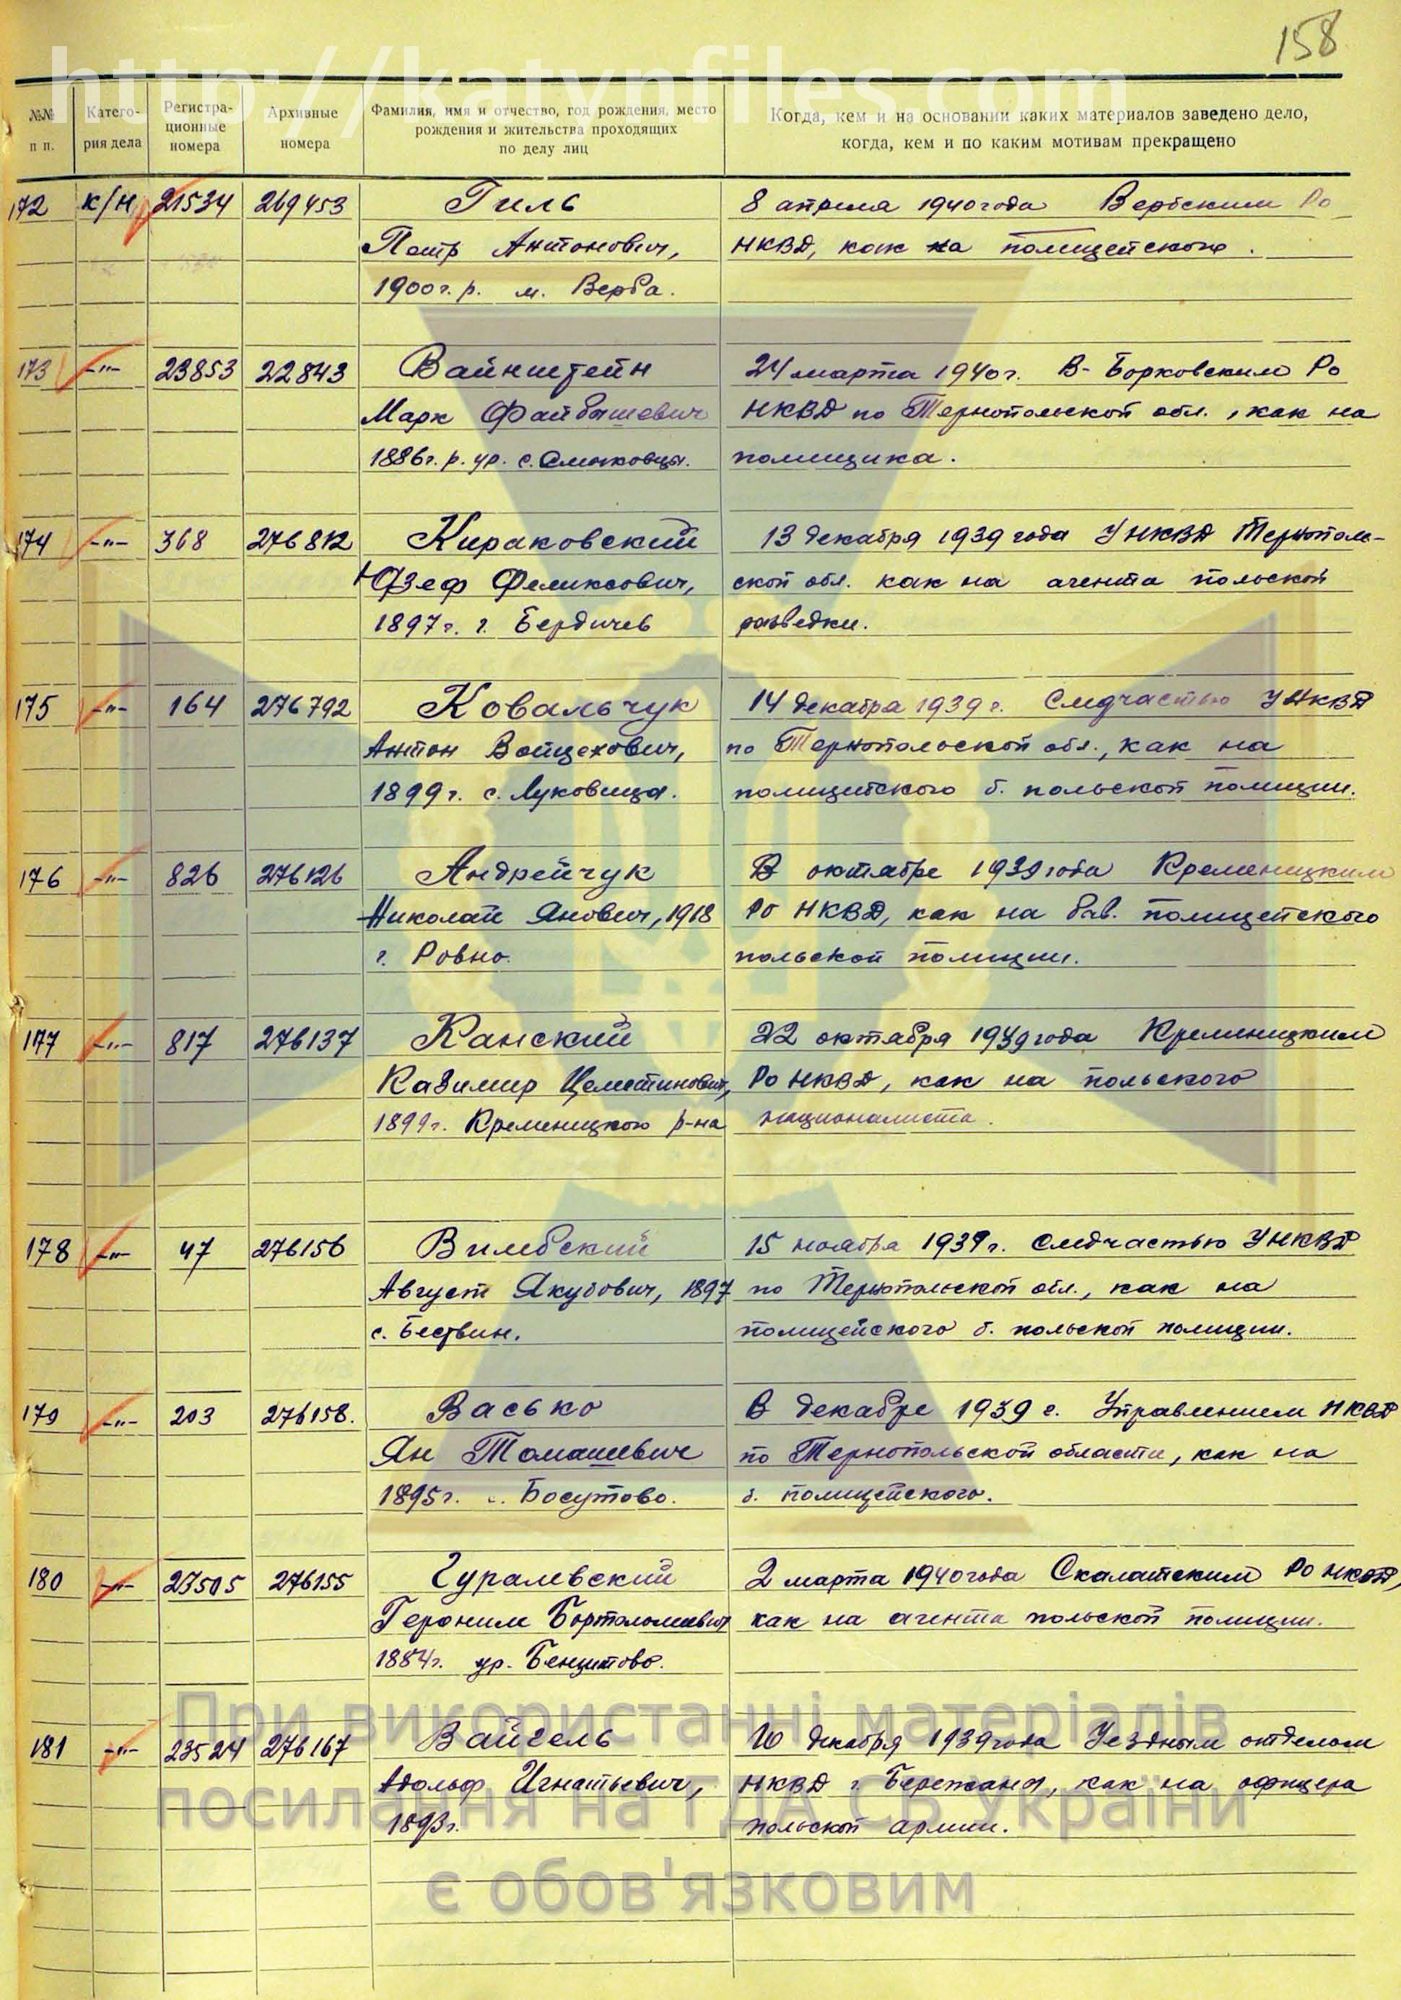 158
http://katynfiles.com
№№ п п.
Катего- рия дела
Регистра- ционные номера
Архивные номера
Фамилия, имя и отчество, год рождения, место рождения и жительства проходящих по делу лиц
Когда, кем и на основании каких материалов заведено дело, когда, кем и по каким мотивам прекращено
172 к/н 21534 269453 Гиль 8 апреля 1940 года Вербским Ро
Петр Антонович, НКВД, как на полицейского.
1900 г. р. м. Верба.
173 -"- 23853 22843 Вайнштейн 24 марта 1940 г. В-Борковским Ро
Марк Файбышевич НКВД по Тернопольской обл., как на
1886 г. р. ур. с. помещика.
174 -"- 368 276812 Кираковский 13 декабря 1939 года УНКВД Тернополь-
Юзеф Феликсович, ской обл. как на агента польской
1897 г. г. Бердичев разведки.
175 -"- 164 276792 Ковальчук 14 декабря 1939 г. Следчастью УНКВД
Антон Войцехович, по Тернопольской обл., как на
1899 г. с. Луковица. полицейского б. польской полиции.
176 -"- 826 276126 Андрейчук В октябре 1939 года Кременицким
Николай Янович, 1918 Ро НКВД, как на быв. полицейского
г. Ровно. польской полиции.
177 -"- 817 276137 Канский 22 октября 1939 года Кременицким
Казимир Целестинович, Ро НКВД, как на польского
1899 г. Кременицкого р-на националиста.
178 -"- 47 276156 Вимбский 15 ноября 1939 г. Следчастью УНКВД
Август Якубович, 1897 по Тернопольской обл., как на
с. Бествин. полицейского б. польской полиции.
179 -"- 203 276158. Васько В декабре 1939 г. Управлением НКВД
Ян Томашевич по Тернопольской области, как на
1895 г. с. Босутово. б. полицейского.
180 -"- 23505 276155 Гуралевский 2 марта 1940 года Скалатским Ро НКВД,
Героним Бортоломеевич как на агента польской полиции.
1884 г. ур.
181 -"- 23524 276167 Вайгель 10 декабря 1939 года Уездным отделом
Адольф Игнатьевич, НКВД г. Бережаны, как на офицера
1893 г. польской армии.
При використанні матеріалів
посилання на ГДА СБ України
є обов'язковим